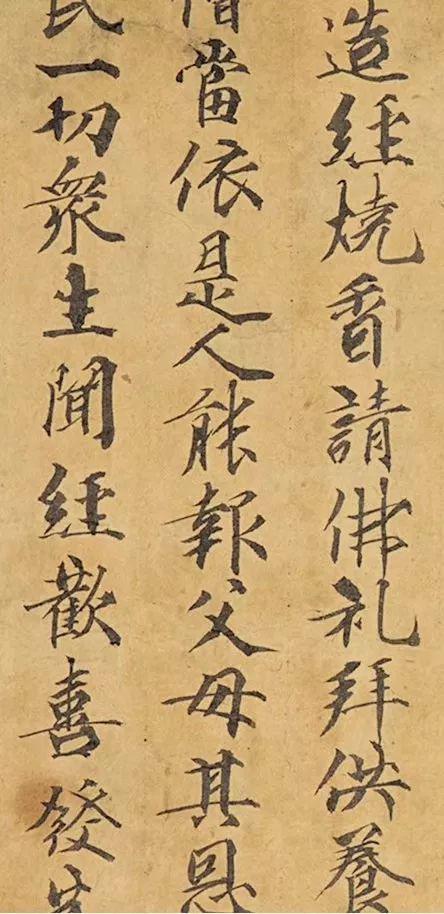 造經燒香請佛礼拜供養
當依是人能報父母其恩
民一切眾生聞經歡喜發